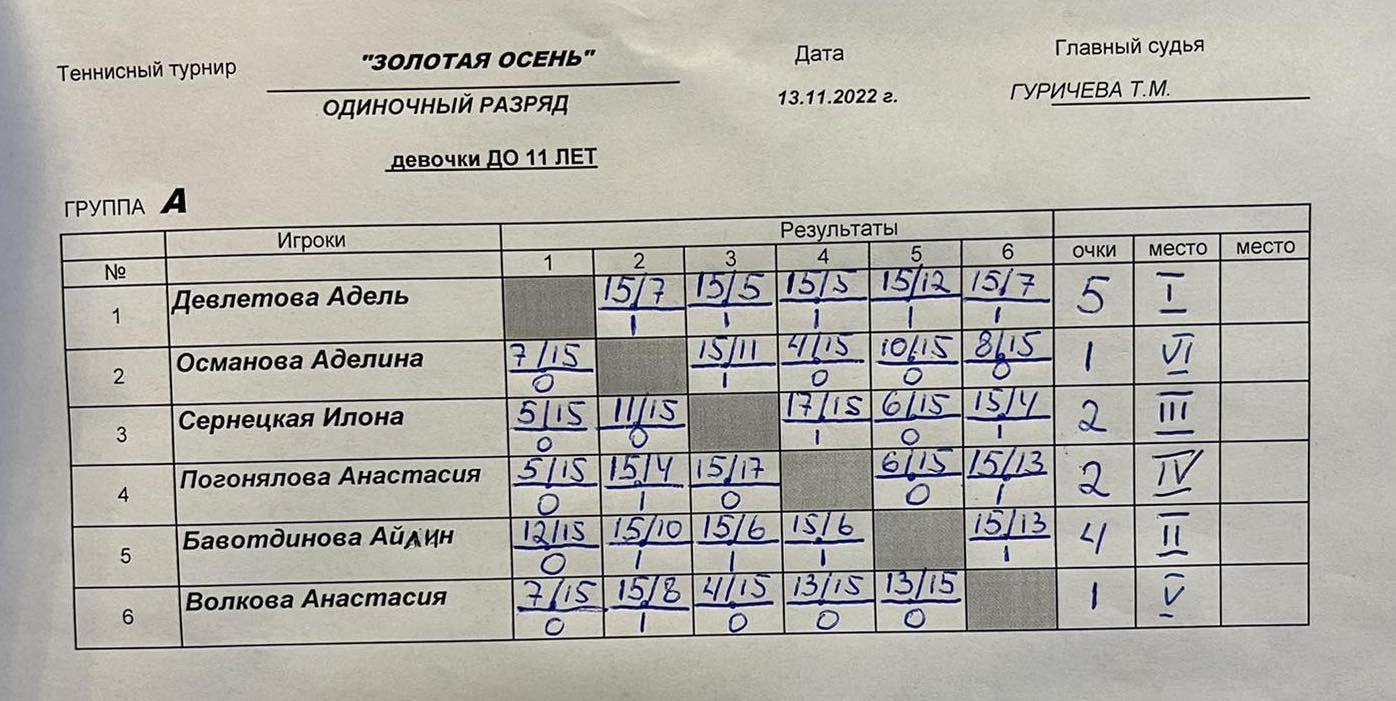 Теннисный турнир "ЗОЛОТАЯ ОСЕНЬ" Дата Главный судья
ОДИНОЧНЫЙ РАЗРЯД 13.11.2022 г. ГУРИЧЕВА Т.М.
девочки ДО 11 ЛЕТ
ГРУППА А
Игроки Результаты
№ 1 2 3 4 5 6 очки место место
1 Девлетова Адель 15/7 15/5 15/5 15/12 15/7 5 I
1 1 1 1 1
2 Османова Аделина 7/15 15/11 4/15 10/15 8/15 1 VI
0 1 0 0 0
3 Сернецкая Илона 5/15 11/15 17/15 6/15 15/4 2 III
0 0 1 0 1
4 Погонялова Анастасия 5/15 15/4 15/17 6/15 15/13 2 IV
0 1 0 0 1
5 Бавотдинова Айлин 12/15 15/10 15/6 15/6 15/13 4 II
0 1 1 1 1
6 Волкова Анастасия 7/15 15/8 4/15 13/15 13/15 1 V
0 1 0 0 0